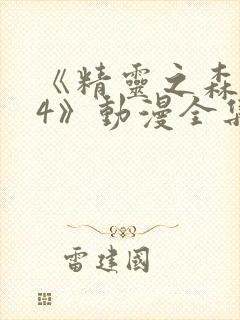 《精靈之森
4》動漫全集
雷建國